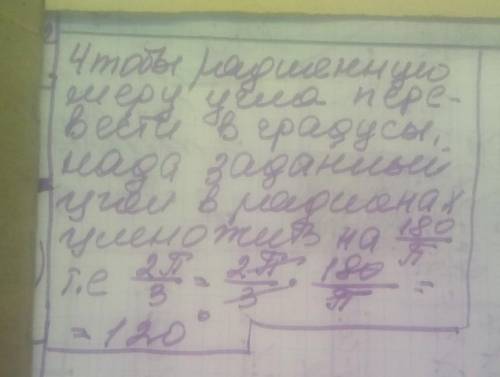 Чтобы радиенную
меру угла пере-
вести в градусы,
нада заданный
угол в радионах
умножить на 180/π
т.е 2π/3 = 2π/3 · 180/π =
= 120°